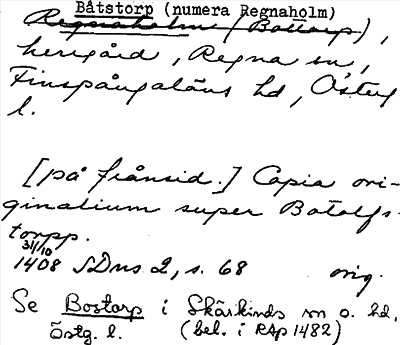 Båtstorp (numera Regnaholm)
Regnaholm (Bottorp),
herrgård, Regna sn,
Finspångaläns hd, Österg
l.
[på frånsid.] Copia ori-
ginalium super Botolfs-
torpp.
31/10
1408 SDns 2, s. 68 orig.
Se Bostorp i Skärkinds sn o. hd,
Östg. l. (bel. i RAp 1482)